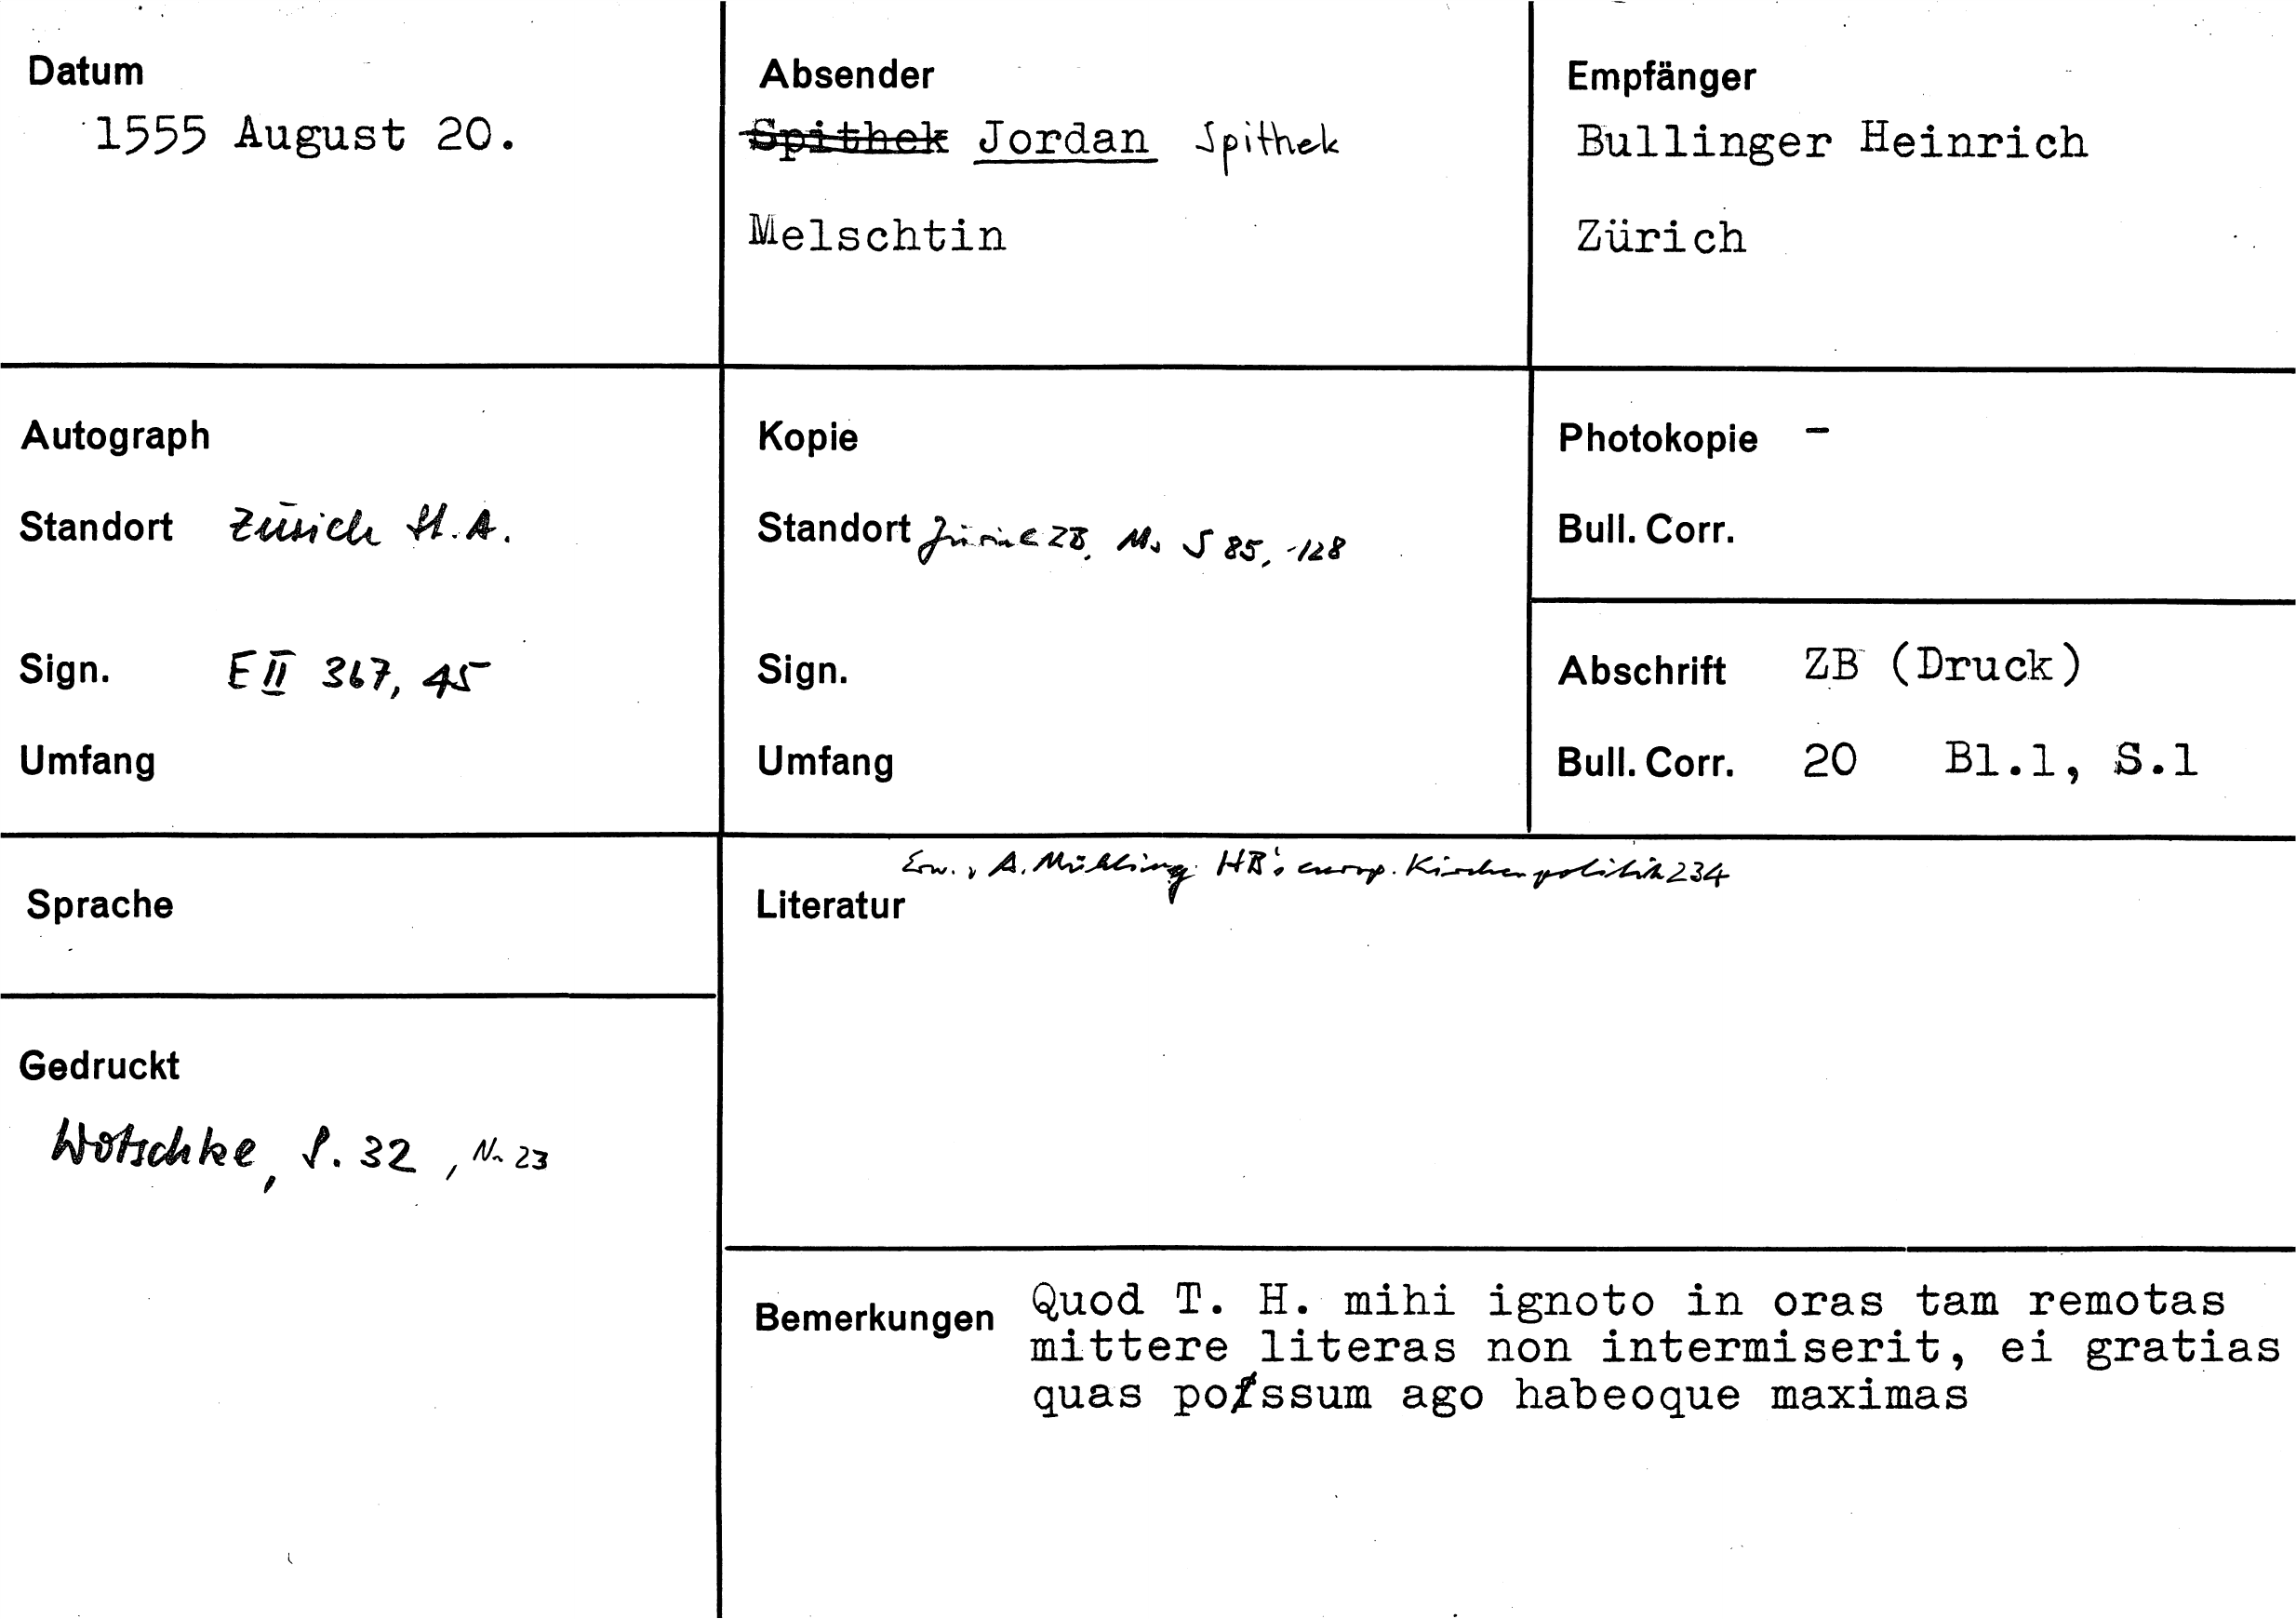 Datum
1555 August 20.
Absender
Spithek Jordan Spithek
Melschtin
Empfänger
Bullinger Heinrich
Zürich
Autograph
Standort Zürich St.A.
Sign. E II 367, 45
Umfang
Kopie
Standort Zürich ZB, Ms S 85, 128
Sign.
Umfang
Photokopie -
Bull. Corr.
Abschrift ZB (Druck)
Bull. Corr. 20 Bl.1, S.1
Sprache
Gedruckt
Wotschke, S. 32, Nr 23
Erw. A. Mühling HB's europ. Kirchenpolitik 234
Literatur
Bemerkungen Quod T. H. mihi ignoto in oras tam remotas
mittere literas non intermiserit, ei gratias
quas possum ago habeoque maximas